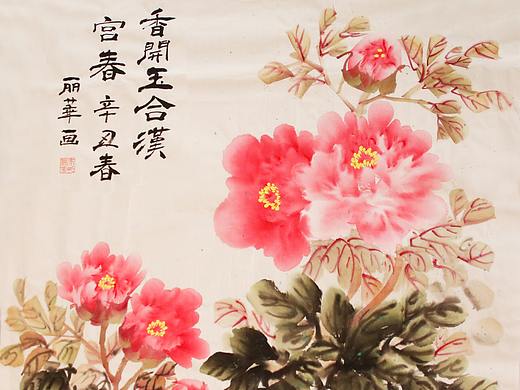 香開玉合漢
宮春 辛丑春
丽華画